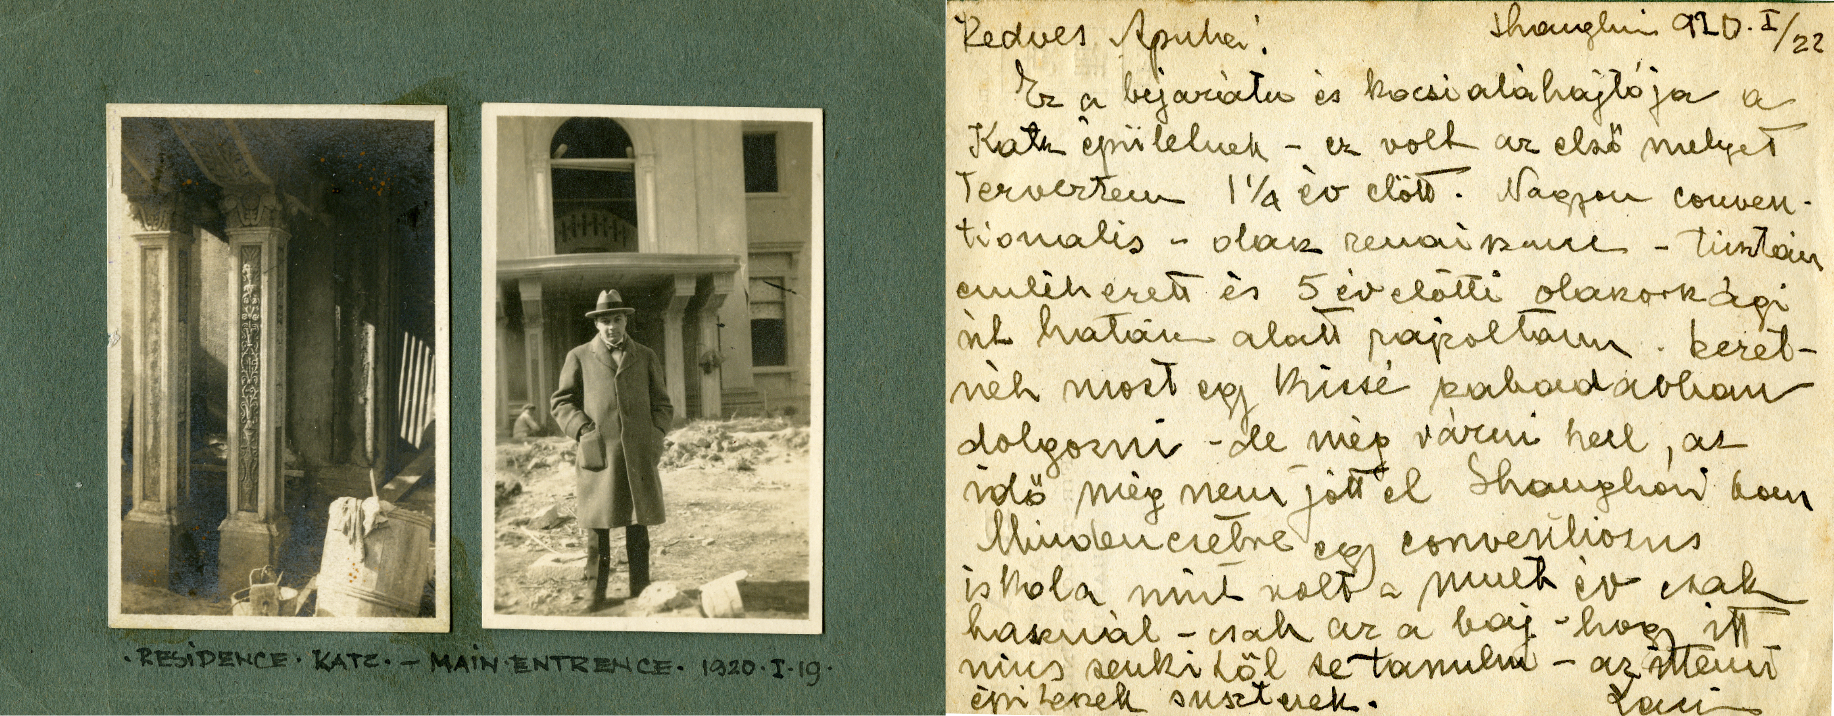 · RESIDENCE · KATZ · – MAIN · ENTRENCE · 1920 · I · 19 ·
Kedves Apuka! Shanghai 920. I/22
Ez a bejáratu és kocsi aláhajtója a
Katz épületnek – ez volt az első melyet
terveztem 1 1/4 év előtt. Nagyon conven-
tionalis – olasz renaissance – tisztán
és 5 év előtti olaszországi
út hatása alatt rajzoltam. Szeret-
nék most egy kissé szabadabban
dolgozni – de még várni kell, az
idő még nem jött el Shanghai ban
Mindenesetre egy
iskola mint volt a mult év csak
használ – csak az a baj – hogy itt
nincs senkitől se tanulni – az itteni
építészek suszterek. Laci